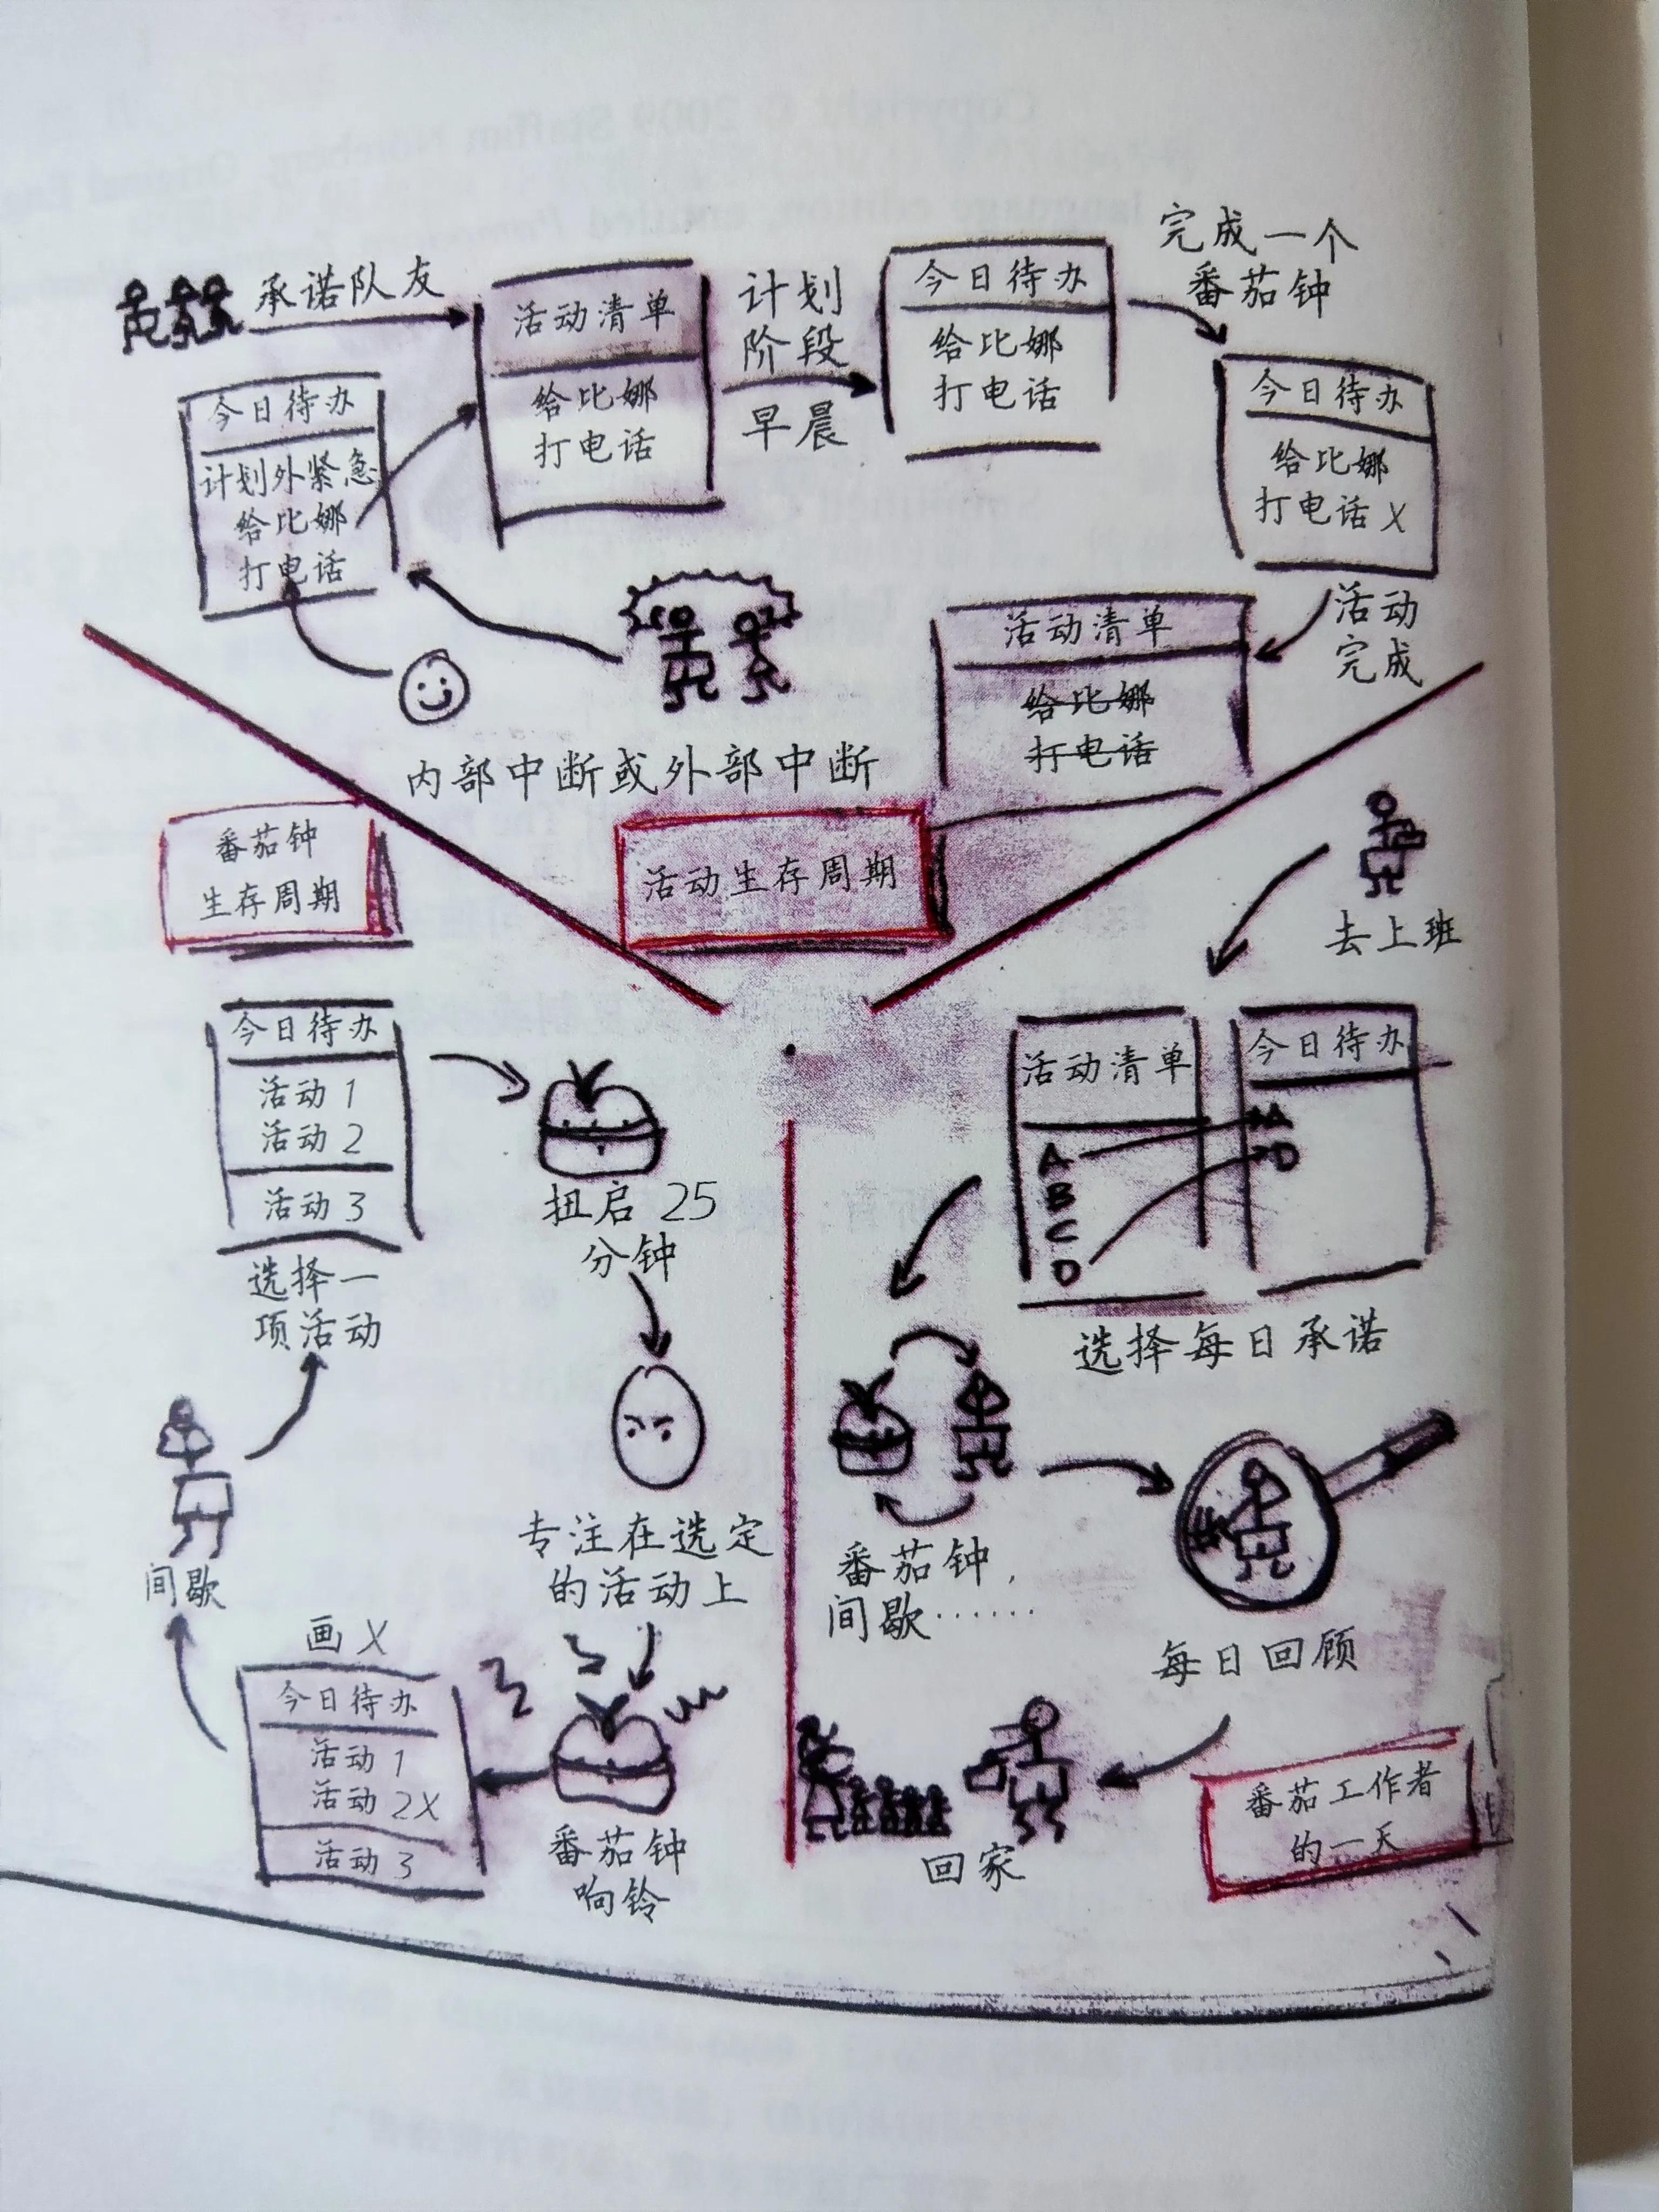 承诺队友
活动清单
给比娜
打电话
计划
阶段
早晨
今日待办
给比娜
打电话
完成一个
番茄钟
今日待办
给比娜
打电话 X
活动
完成
活动清单
给比娜
打电话
今日待办
计划外紧急
给比娜
打电话
内部中断或外部中断
活动生存周期
番茄钟
生存周期
今日待办
活动 1
活动 2
活动 3
选择一
项活动
扭启 25
分钟
专注在选定
的活动上
番茄钟
响铃
画 X
今日待办
活动 1
活动 2X
活动 3
间歇
去上班
活动清单
A
B
C
D
今日待办
A
D
选择每日承诺
番茄钟，
间歇……
每日回顾
回家
番茄工作者
的一天